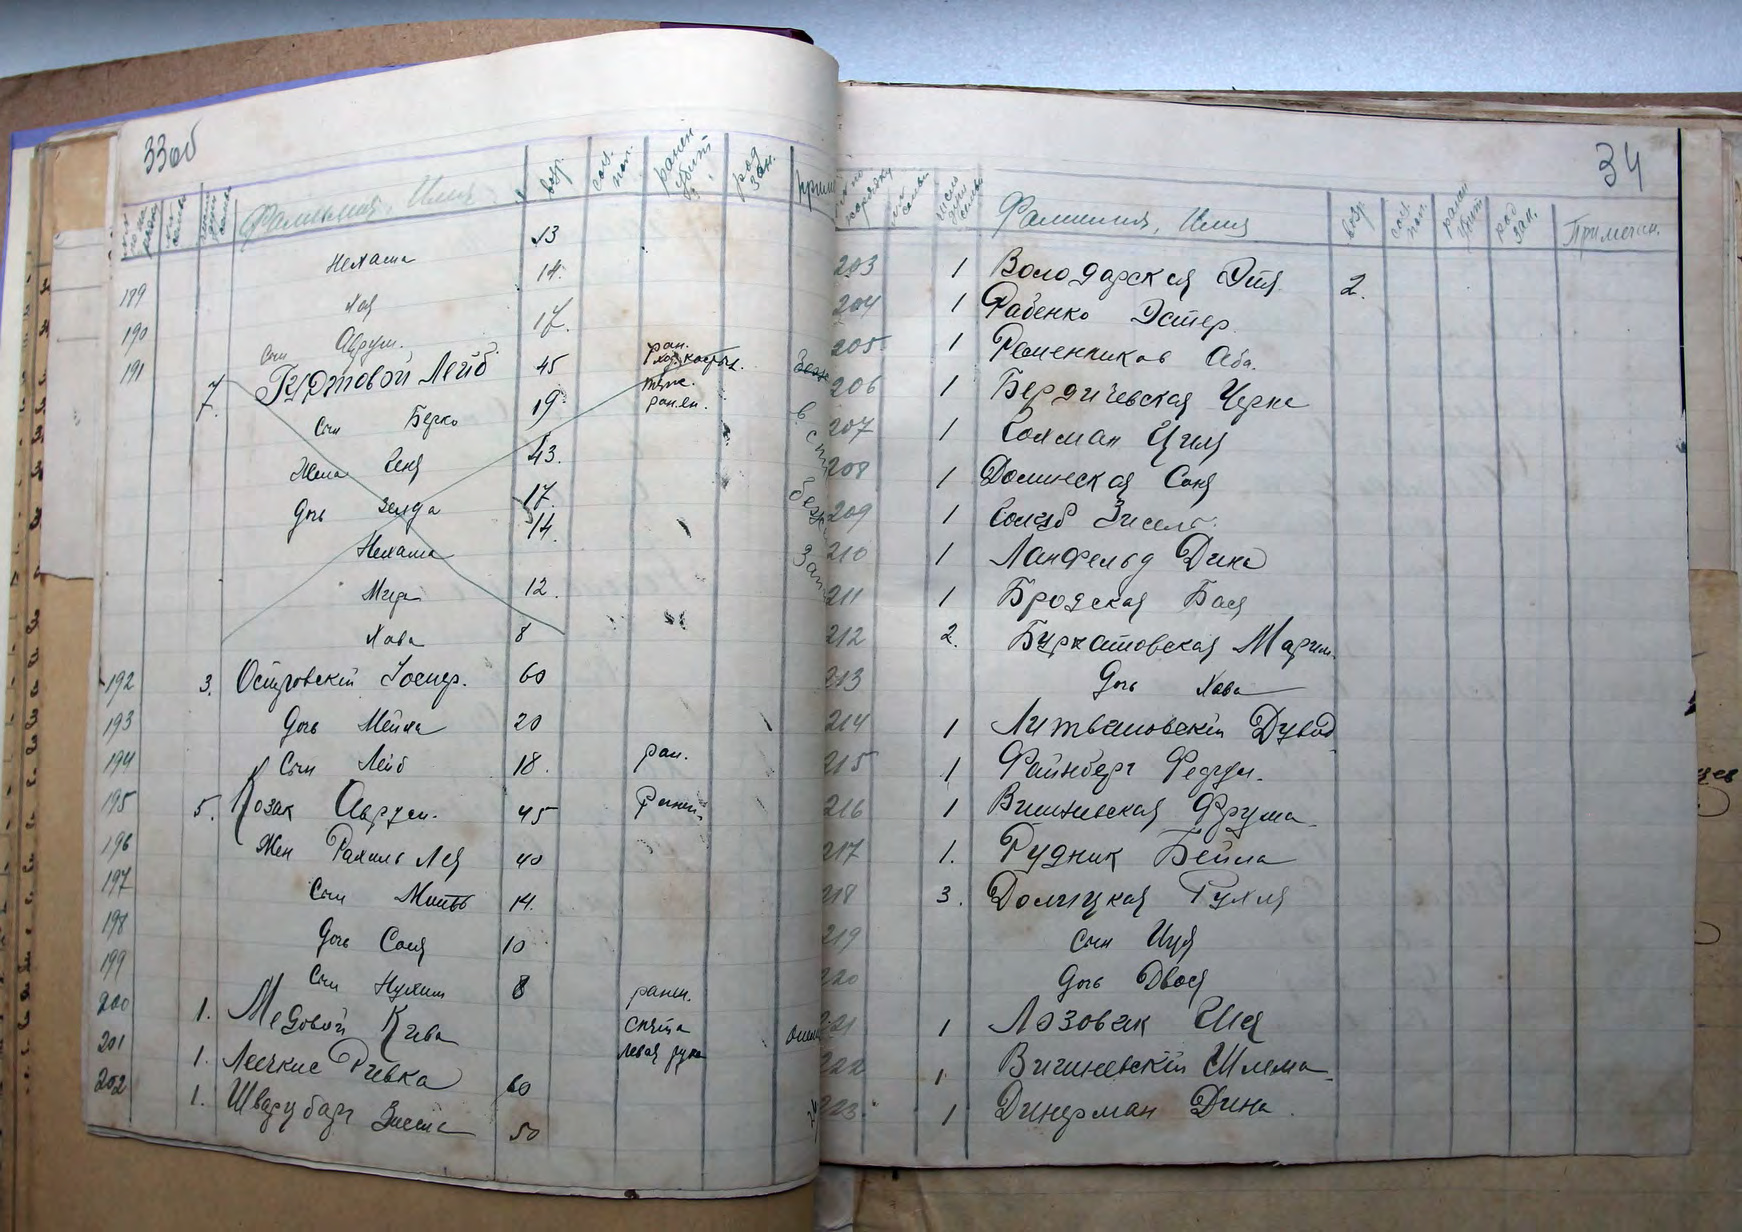 33об
Фамилия, Имя возр. соц. пол. ранен убит род зан. прим
Нехама 13
189 Хая 14.
190 Сын Аврум. 17.
191 7. Гуртовой Лейб. 45 ран.
Сын Берко 19. ранен.
Жена Геня 43.
Дочь Зелда 17.
Нехама 14.
12.
Хава 8
192 3. Островскій Иосиф. 60
193 Дочь Мейха 20
194 Сын Лейб 18. ран.
195 5. Козак Аврум. 45 Ранен.
196 Жен Рахиль Лея 40
197 Сын 14.
198 Дочь Соня 10
199 Сын Нухим 8 ранен.
200 1. Медовой Кива спина левая рука
201 1. Ривка 60
202 1. Шварцбарг 50
34
Фамилия, Имя возр. соц. пол. ранен убит род зан. Примечан.
203 1 Володарская Этя 2.
204 1 Рабенко Эстер
205 1 Ременников Аба.
206 1 Бердичевская Черна
207 1 Циля
208 1 Долинская Соня
209 1 Голуб Зисель.
210 1 Ланфельд Дика
211 1 Бродская Бася
212 2. Буркатовская Марим
213 Дочь Хава
214 1 Литвановскій Дувид
215 1 Файнберг
216 1 Вишневская Фрума
217 1. Рудник Бейла
218 3. Долицкая Рухля
219 Сын Иця
220 Дочь Двося
221 1 Лозовик Шая
222 1. Вишневскій Шлема
223. 1 Динерман Дина